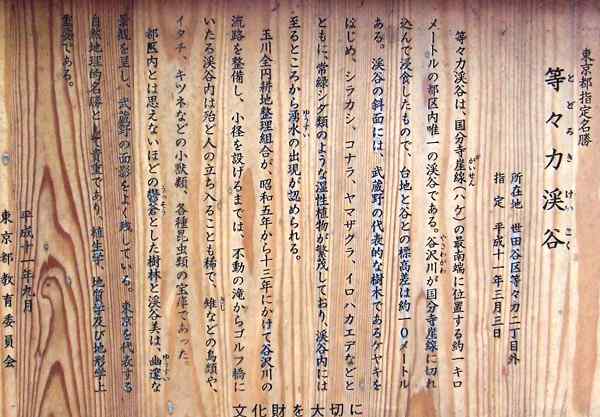 東京都指定名勝
等々力渓谷
とどろきけいこく
所在地 世田谷区等々力二丁目外
指定 平成十一年三月三日
等々力渓谷は、国分寺崖線(ハケ)の最南端に位置する約一キロ
がいせん
メートルの都区内唯一の渓谷である。谷沢川が国分寺崖線に切れ
やざわがわ
込んで浸食したもので、台地と谷との標高差は約一〇メートル
ある。渓谷の斜面には、武蔵野の代表的な樹木であるケヤキを
はじめ、シラカシ、コナラ、ヤマザクラ、イロハカエデなどと
ともに、常緑シダ類のような湿性植物が繁茂しており、渓谷内には
至るところから湧水の出現が認められる。
ゆうすい
玉川全円耕地整理組合が、昭和五年から十三年にかけて谷沢川の
流路を整備し、小径を設けるまでは、不動の滝からゴルフ橋に
いたる渓谷内は殆ど人の立ち入ることも稀で、雉などの鳥類や、
きじ
イタチ、キツネなどの小獣類、各種昆虫類の宝庫であった。
都区内とは思えないほどの鬱蒼とした樹林と渓谷美は、幽邃な
うっそう
ゆうすい
景観を呈し、武蔵野の面影をよく残している。東京を代表する
自然地理的名勝として貴重であり、植生学、地質学及び地形学上
重要である。
平成十一年九月
東京都教育委員会
文化財を大切に